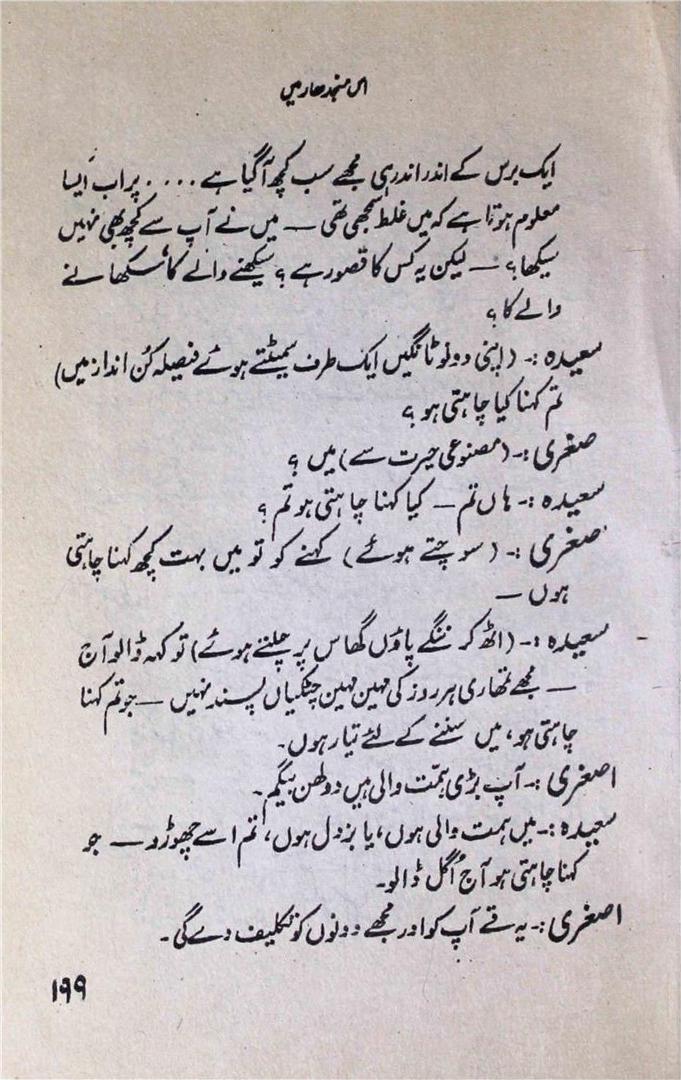 اس منجدھار میں
ایک برس کے اندر اندر ہی مجھے سب کچھ آ گیا ہے .... پر اب ایسا
معلوم ہوتا ہے کہ میں غلط سمجھی تھی — میں نے آپ سے کچھ بھی نہیں
سیکھا؟ — لیکن یہ کس کا قصور ہے ؟ سیکھنے والے کا، سکھانے
والے کا ؟
سعیدہ :۔ (اپنی دونو ٹانگیں ایک طرف سمیٹتے ہوئے فیصلہ کُن انداز میں)
تم کہنا کیا چاہتی ہو ؟
صغری :۔ (مصنوعی حیرت سے) میں ؟
سعیدہ :۔ ہاں تم — کیا کہنا چاہتی ہو تم ؟
اصغری :۔ (سوچتے ہوئے) کہنے کو تو میں بہت کچھ کہنا چاہتی
ہوں —
سعیدہ :۔ (اٹھ کر ننگے پاؤں گھاس پر چلتے ہوئے) تو کہہ ڈالو آج
— مجھے تمھاری ہر روز کی مہین مہین چٹکیاں پسند نہیں — جو تم کہنا
چاہتی ہو، میں سننے کے لئے تیار ہوں۔
اصغری :۔ آپ بڑی ہمّت والی ہیں دولھن بیگم۔
سعیدہ :۔ میں ہمت والی ہوں، یا بزدل ہوں، تم اسے چھوڑو — جو
کہنا چاہتی ہو آج اُگل ڈالو۔
اصغری :۔ یہ قے آپ کو اور مجھے دونوں کو تکلیف دے گی۔
۱۹۹